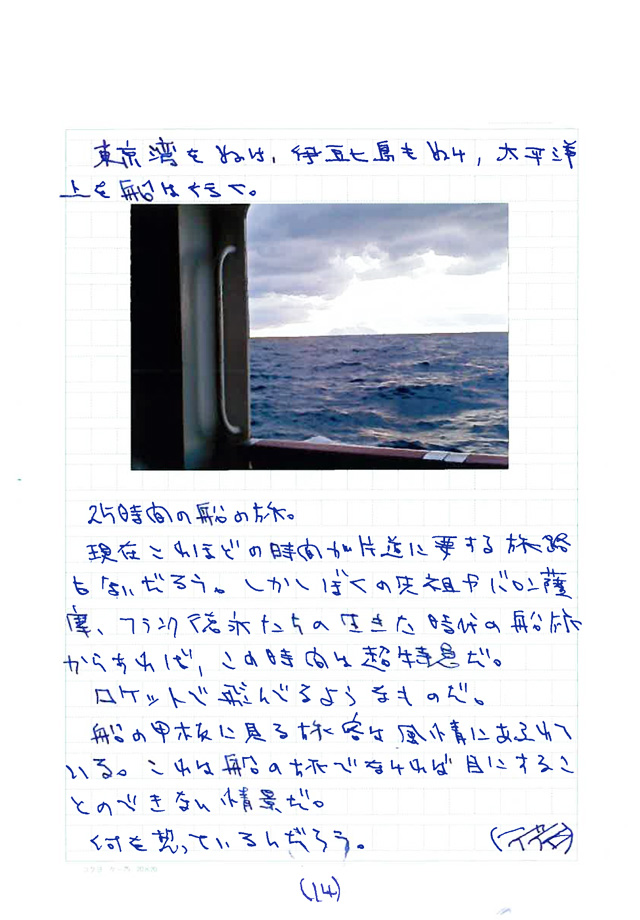 東京湾をぬけ、伊豆七島もぬけ、太平洋
上を船は行く。
25時間の船の旅。
現在これほどの時間が片道に要する旅路
もないだろう。しかしぼくの先祖やバロン薩
摩、フランク徳永たちの生きた時代の船旅
からすれば、この時間は超特急だ。
ロケットで飛んでるようなものだ。
船の甲板に見る旅客は風情にあふれて
いる。これは船の旅でなければ目にするこ
とのできない情景だ。
何を想っているんだろう。
(14)